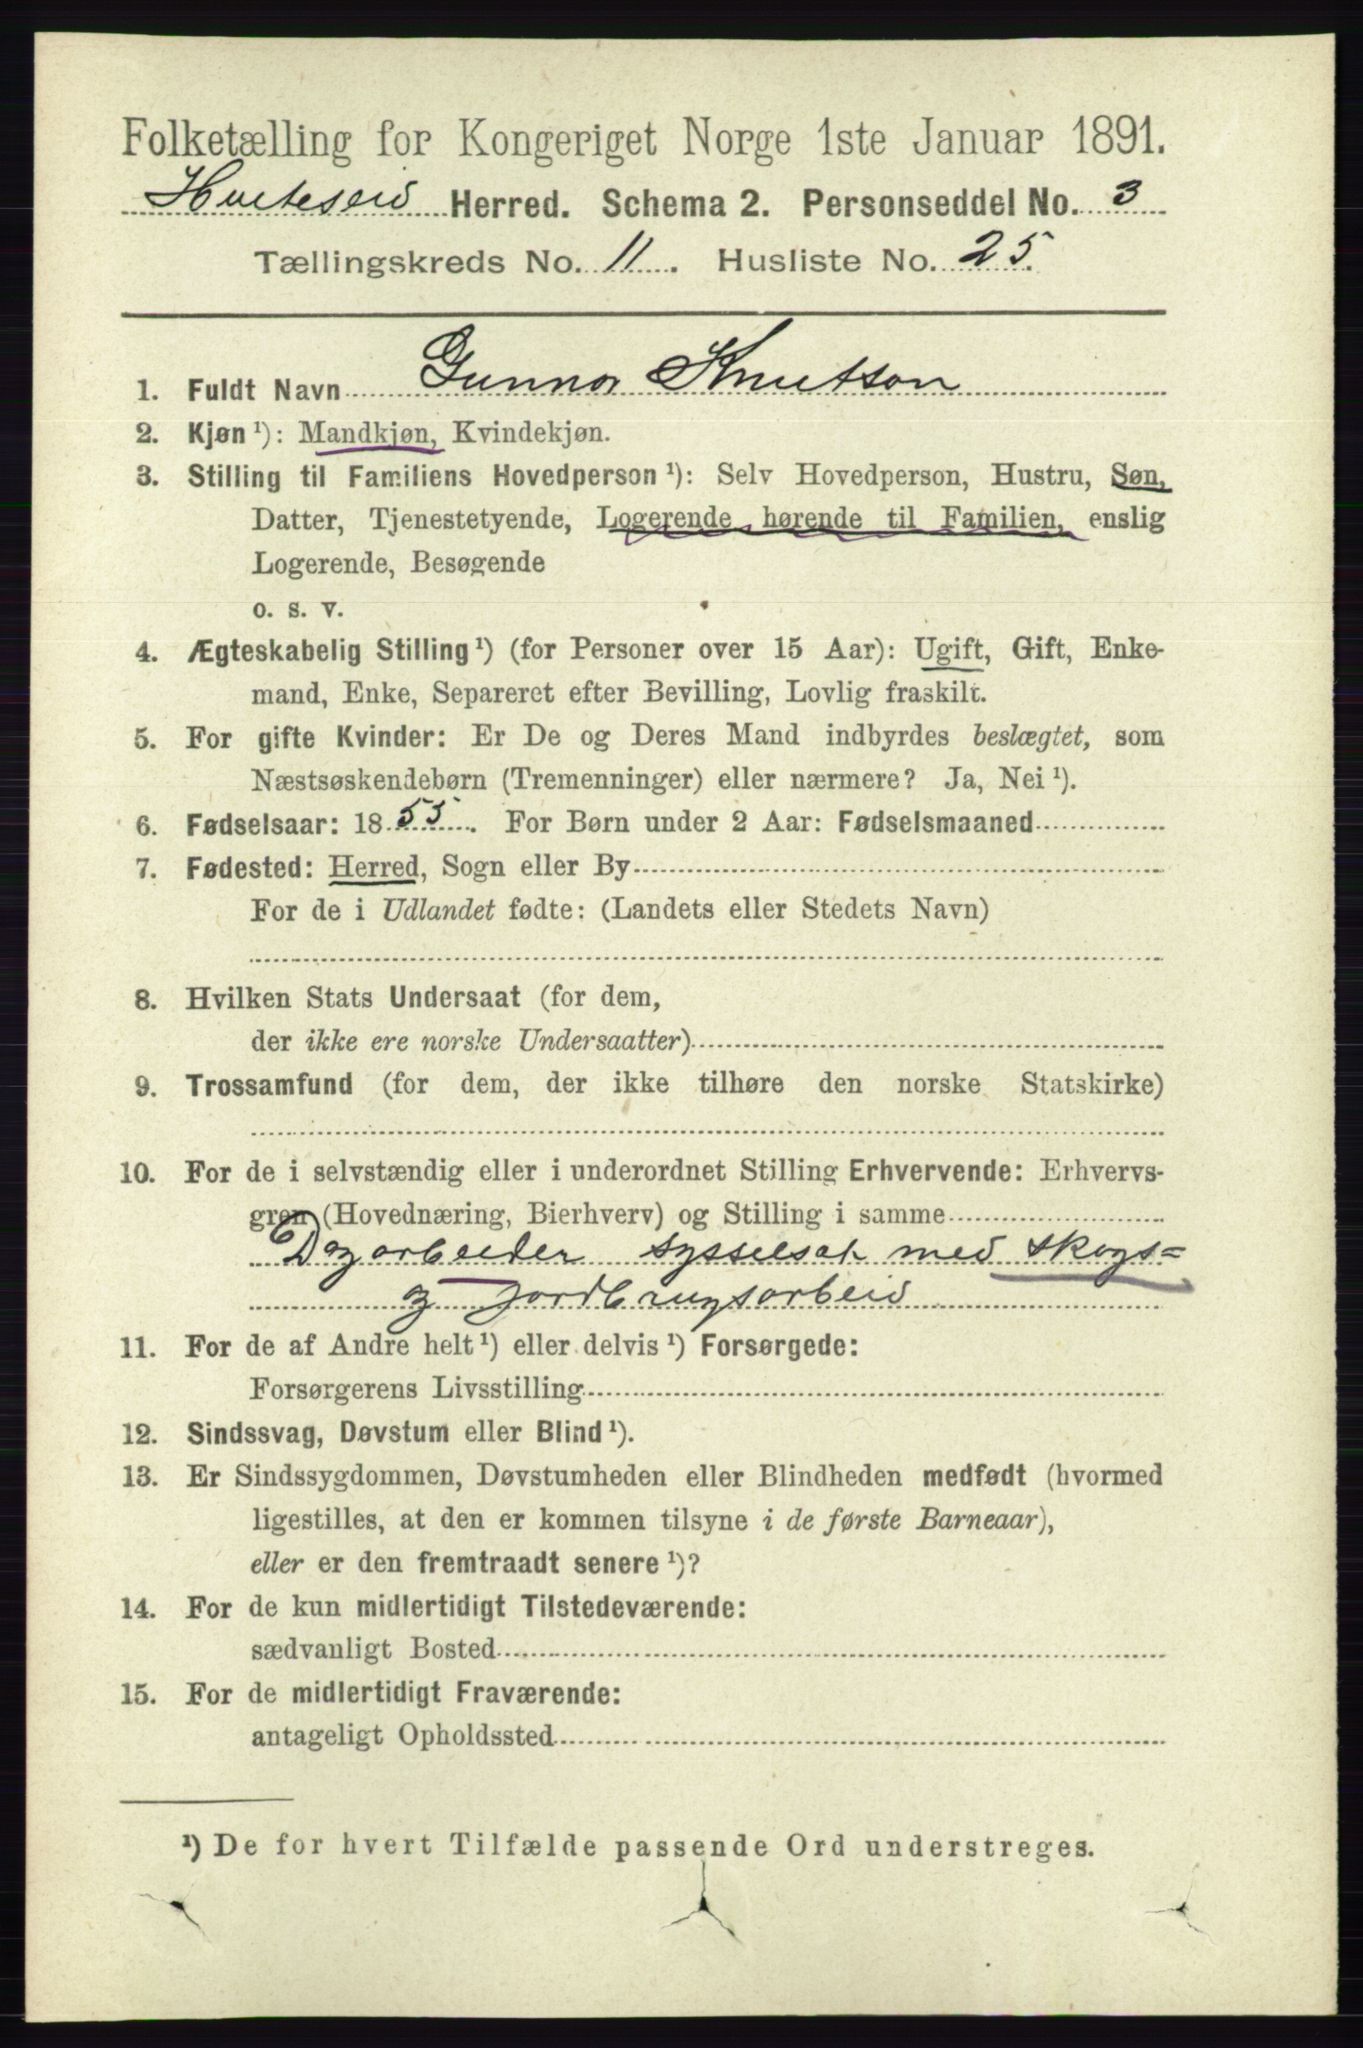 Folketælling for Kongeriget Norge 1ste Januar 1891.
Hviteseid Herred. Schema 2. Personseddel No. 3
Tællingskreds No. 11. Husliste No. 25.
1. Fuldt Navn Gunnar Knutson
2. Kjøn ¹): Mandkjøn, Kvindekjøn.
3. Stilling til Familiens Hovedperson ¹): Selv Hovedperson, Hustru, Søn,
Datter, Tjenestetyende, Logerende hørende til Familien, enslig
Logerende, Besøgende
o. s. v.
4. Ægteskabelig Stilling ¹) (for Personer over 15 Aar): Ugift, Gift, Enke-
mand, Enke, Separeret efter Bevilling, Lovlig fraskilt.
5. For gifte Kvinder: Er De og Deres Mand indbyrdes beslægtet, som
Næstsøskendebørn (Tremenninger) eller nærmere? Ja, Nei ¹).
6. Fødselsaar: 1855. For Børn under 2 Aar: Fødselsmaaned
7. Fødested: Herred, Sogn eller By
For de i Udlandet fødte: (Landets eller Stedets Navn)
8. Hvilken Stats Undersaat (for dem,
der ikke ere norske Undersaatter)
9. Trossamfund (for dem, der ikke tilhøre den norske Statskirke)
10. For de i selvstændig eller i underordnet Stilling Erhvervende: Erhvervs-
gren (Hovednæring, Bierhverv) og Stilling i samme
Dagarbeider sysselsat med skogs=
og jordbrugsarbeid
11. For de af Andre helt ¹) eller delvis ¹) Forsørgede:
Forsørgerens Livsstilling
12. Sindssvag, Døvstum eller Blind ¹).
13. Er Sindssygdommen, Døvstumheden eller Blindheden medfødt (hvormed
ligestilles, at den er kommen tilsyne i de første Barneaar),
eller er den fremtraadt senere ¹)?
14. For de kun midlertidigt Tilstedeværende:
sædvanligt Bosted
15. For de midlertidigt Fraværende:
antageligt Opholdssted
¹) De for hvert Tilfælde passende Ord understreges.